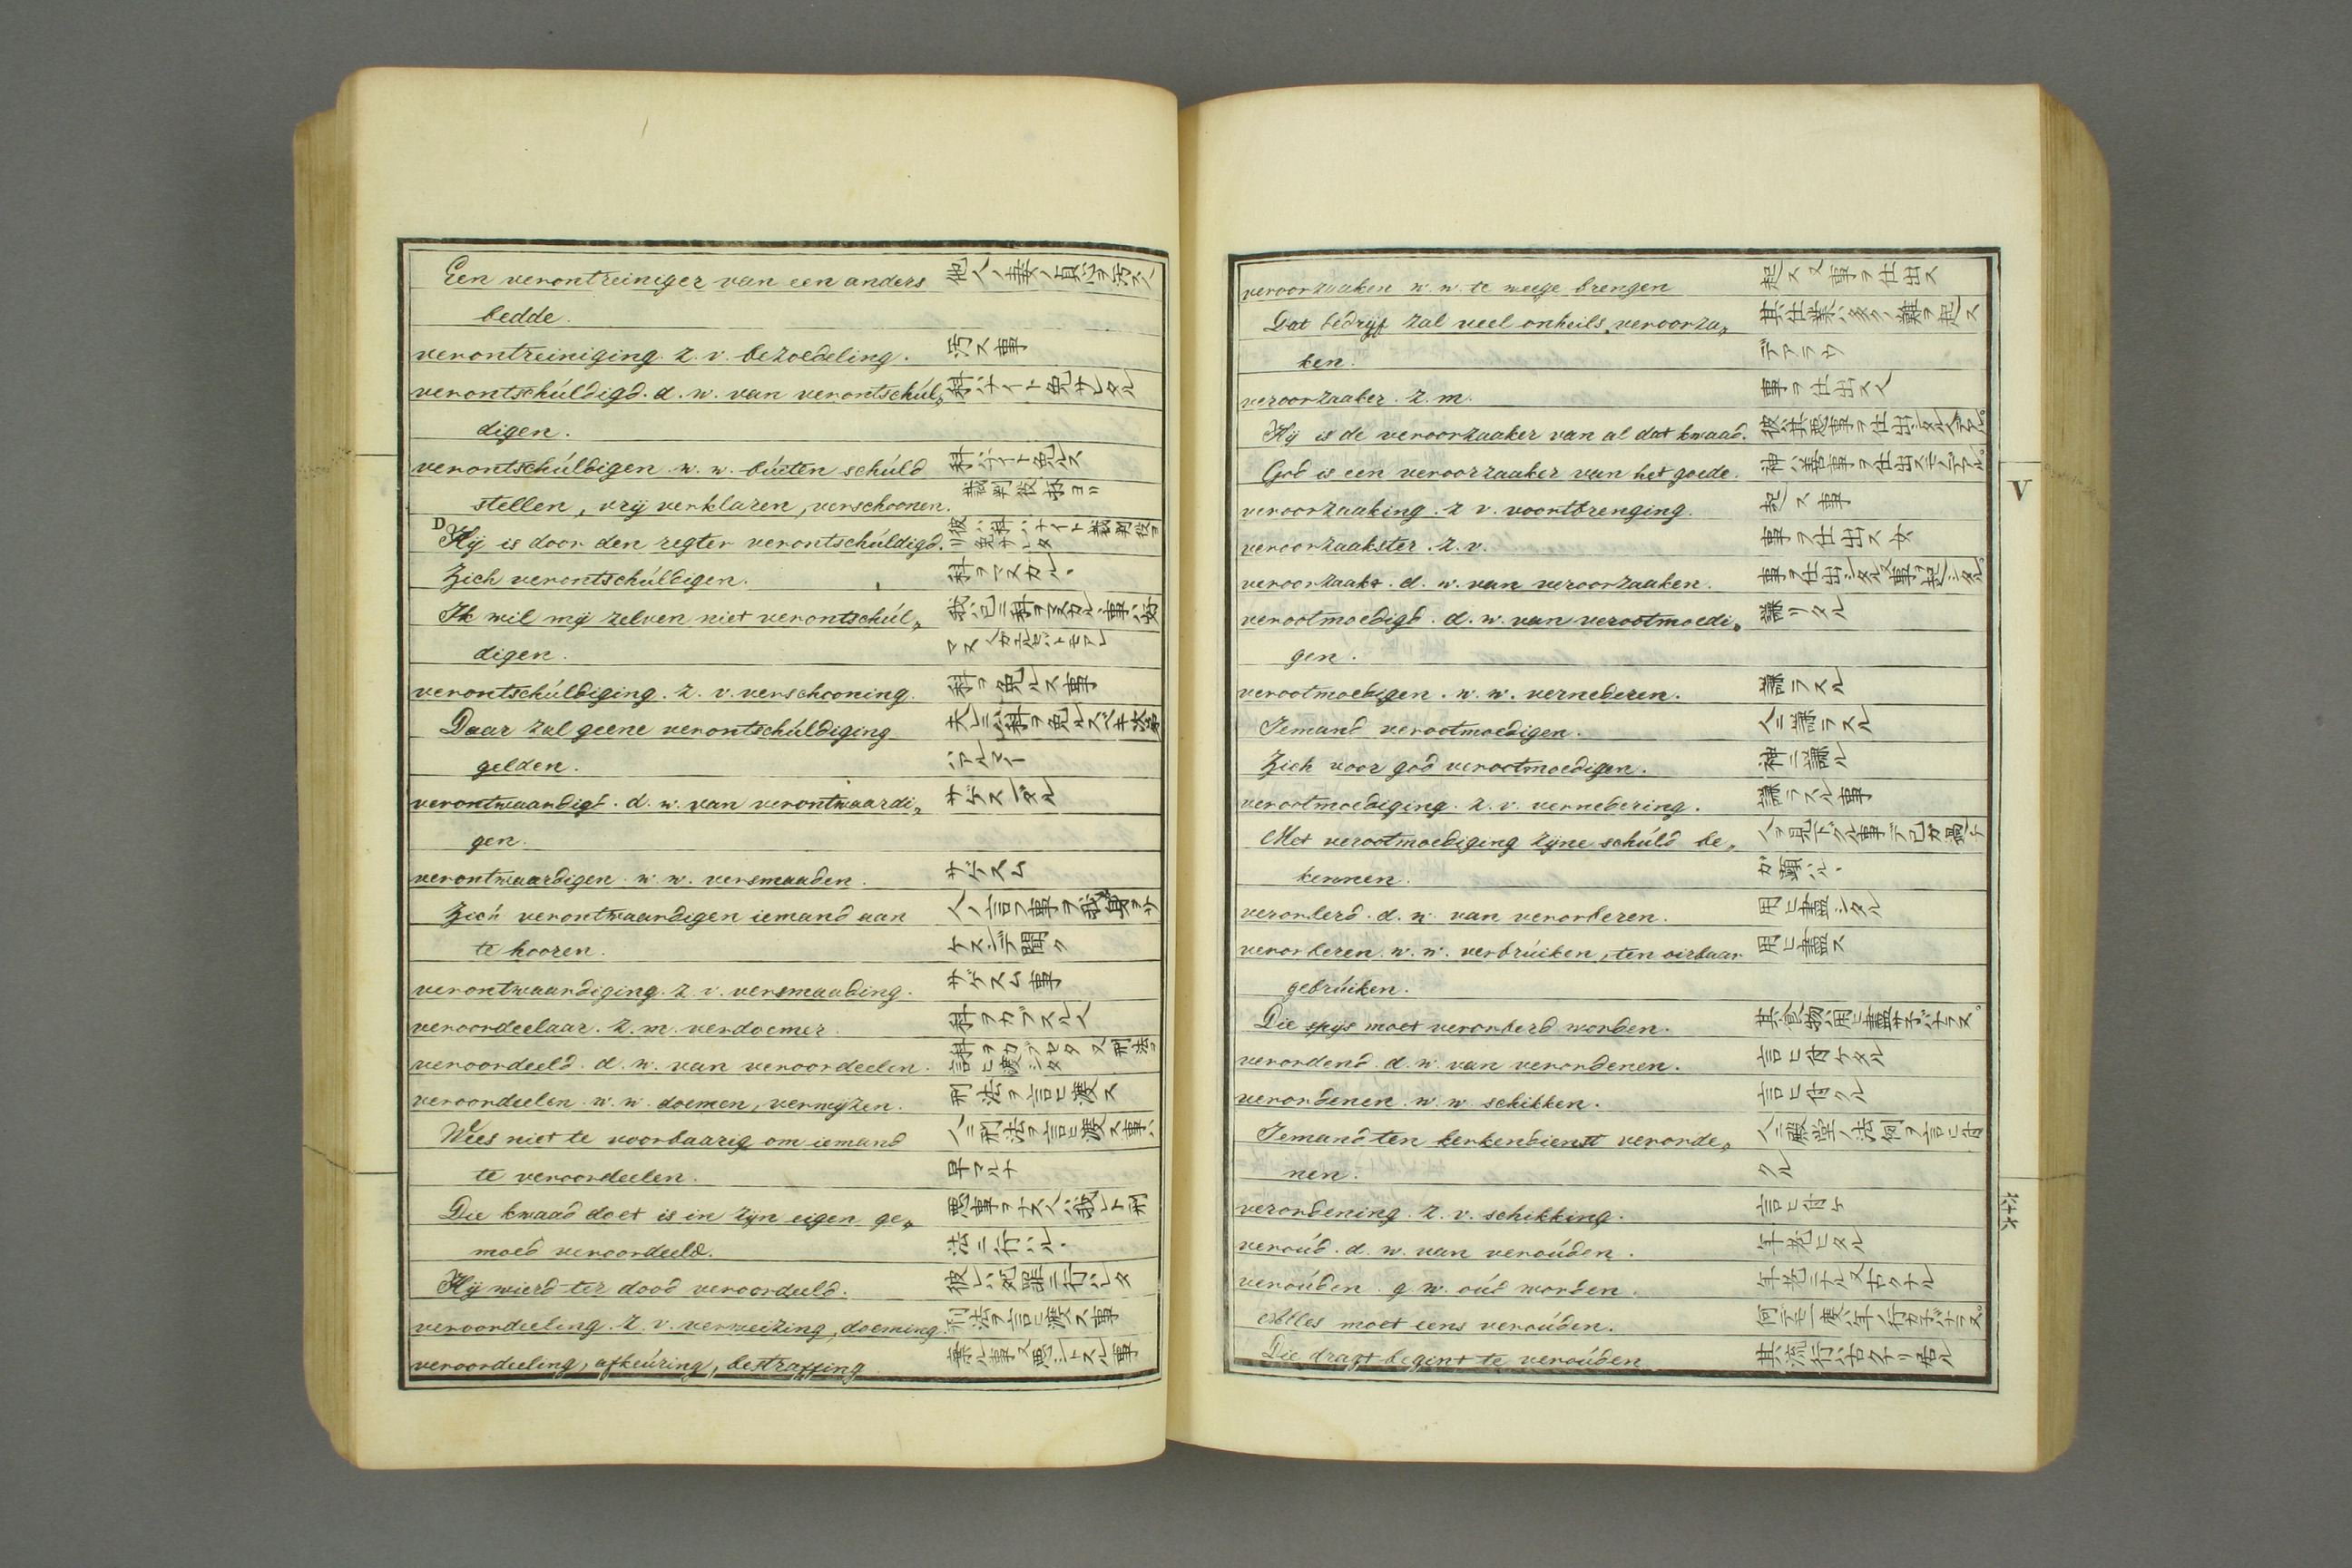 Een verontreiniger van een anders 他人ノ妻ノ貞心ヲ汚ス人
bedde.
verontreiniging. z. v. bezoedeling. 汚ス事
verontschúldigd. d. w. van verontschúl„ 科ハナイト免サレタル
digen.
verontschúldigen. w. w. búiten schúld 科ハナイト免ルス
stellen, vrij verklaren, verschoonen. 裁判役抔ヨリ
D
Hij is door den regter verontschúldigd. 彼ハ科ハナイト裁判役ヨリ免サレタ
Zich verontschúldigen. 科ヲマヌカル丶
Ik wil mij zelven niet verontschúl„
digen.
verontschúldiging. z. v. verschooning. 科ヲ免ルス事
Daar zal geene verontschúldiging
gelden. ハアルマイ
verontwaardigd. d. w. van verontwaardi„ サゲスンダル
gen.
verontwaardigen. w. w. versmaaden. サゲスム
Zich verontwaardigen iemand aan
te hooren. ケスンデ聞ク
verontwaardiging. z. v. versmaading. サゲスム事
veroordeelaar. z. m. verdoemer. 科ヲカブスル人
veroordeeld. d. w. van veroordeelen. 科ヲカブセタ又刑法ヲ言ヒ渡シタ
veroordeelen. w. w. doemen, verwyzen. 刑法ヲ言ヒ渡ス
Wees niet te voorbaarig om iemand 人ニ刑法ヲ言ヒ渡ス事ハ
te veroordeelen. 早マルナ
Die kwaad doet is in zijn eigen ge„ 悪事ヲナス人ハ我レト刑
moed veroordeeld. 法ニ行ハル丶
Hij wierd ter dood veroordeeld. 彼レハ死罪ニ行ハレタ
veroordeeling. z. v. verweizing, doeming. 刑法ヲ言ヒ渡ス事
veroordeeling, afkeúring, bestraffing. 棄ル事又悪シトスル事
veroorzaaken w. w. te weege brengen 起ス又事ヲ仕出ス
Dat bedrijf zal veel onheils veroorza„ 其仕業ハ多クノ難ヲ起ス
ken. デアラウ
veroorzaaker. z. m. 事ヲ仕出ス人
Hij is de veroorzaaker van al dat kwaad. 彼ハ其悪事ヲ仕出シタル人デアル。
God is een veroorzaaker van het goede. 神ハ善事ヲ仕出スモノデアル。
veroorzaaking. z v. voortbrenging. 起ス事
veroorzaakster. z. v. 事ヲ仕出ス女
veroorzaakt. d. w. van veroorzaaken. 事ヲ仕出シタル又事ヲ起シタル
verootmoedigd. d. w. van verootmoedi„ 謙リタル
gen.
verootmoedigen. w. w. vernederen. 謙ラスル
Iemand verootmoedigen. 人ニ謙ラスル
Zich voor god verootmoedigen. 神ニ謙ル
verootmoediging. z. v. vernedering. 謙ラスル事
Met verootmoediging zijne schúld be„
kennen. ガ顕ハル丶
verorberd. d. w. van verorberen. 用ヒ盡シタル
verorberen. w. w. verbrúiken, ten oirbaar 用ヒ盡ス
gebrúiken.
Die spijs moet verorberd worden. 其食物ハ用ヒ盡サネバナラヌ。
verordend. d. w. van verordenen. 言ヒ付ケタル
verordenen. w. w. schikken. 言ヒ付クル
Iemand ten kerkendienst verorde„ 人ニ殿堂ノ法例ヲ言ヒ付
nen. クル
verordening. z. v. schikking. 言ヒ付ケ
veroúd. d. w. van veroúden. 年老ヒタル
veroúden. g. w. oúd worden. 年老ニナル又古クナル
Alles moet eens veroúden. 何デモ一度ハ年ノ行カネバナラヌ。
Die dragt begint te veroúden 其流行ハ古クナリ居ル
V